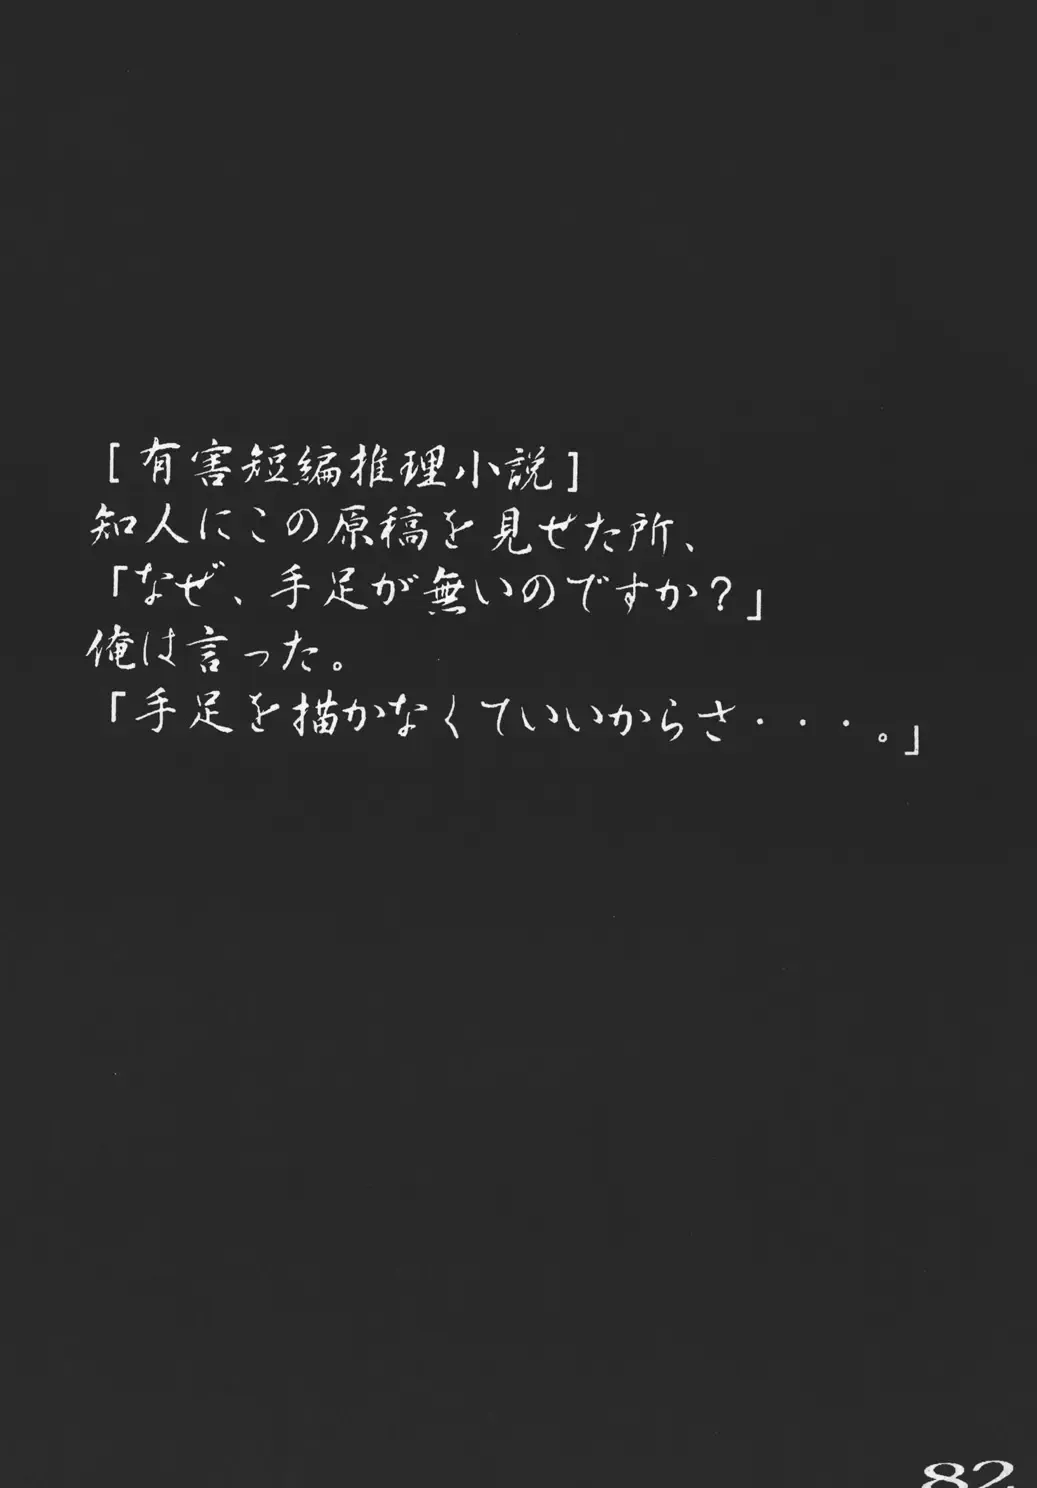 [有害短編推理小説]
知人にこの原稿を見せた所、
「なぜ、手足が無いのですか?」
俺は言った。
「手足を描かなくていいからさ・・・。」
82